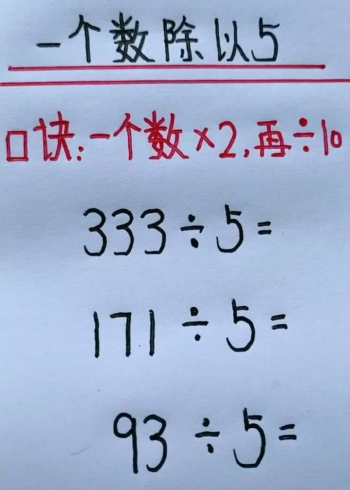 一个数除以5
口诀:一个数×2,再÷10
333÷5=
171÷5=
93÷5=